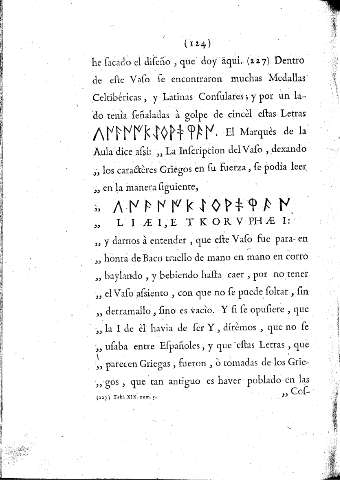 (124)
he sacado el diseño, que doy àqui. (227) Dentro
de este Vaso se encontraron muchas Medallas
Celtibéricas, y Latinas Consulares; y por un la-
do tenìa señaladas à golpe de cincèl estas Letras
El Marquès de la
Aula dice assi: „ La Inscripcion del Vaso, dexando
„ los caractères Griegos en su fuerza, se podìa leer
„ en la manera siguiente,
„
„ L I Æ I , E T K O R U P H Æ I :
„ y darnos à entender, que este Vaso fue para en
„ honra de Baco traello de mano en mano en corro
„ baylando, y bebiendo hasta caer, por no tener
„ el Vaso assiento, con que no se puede soltar, sin
„ derramallo, sino es vacìo. Y si se opusiere, que
„ la I de èl havia de ser Y, dirèmos, que no se
„ usaba entre Españoles, y que estas Letras, que
„ parecen Griegas, fueron, ò tomadas de los Grie-
„ gos, que tan antiguo es haver poblado en las
(227) num. 5.
„ Cos-